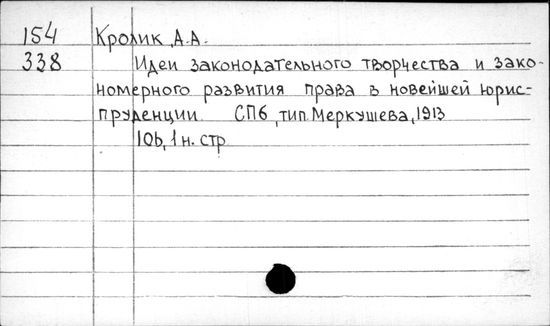 154 Кролик А.А.
338 Идеи законодательного творчества и зако-
номерного развития права в новейшей юрис-
пруденции. СПб, тип. Меркушева, 1913
106, 1 н. стр